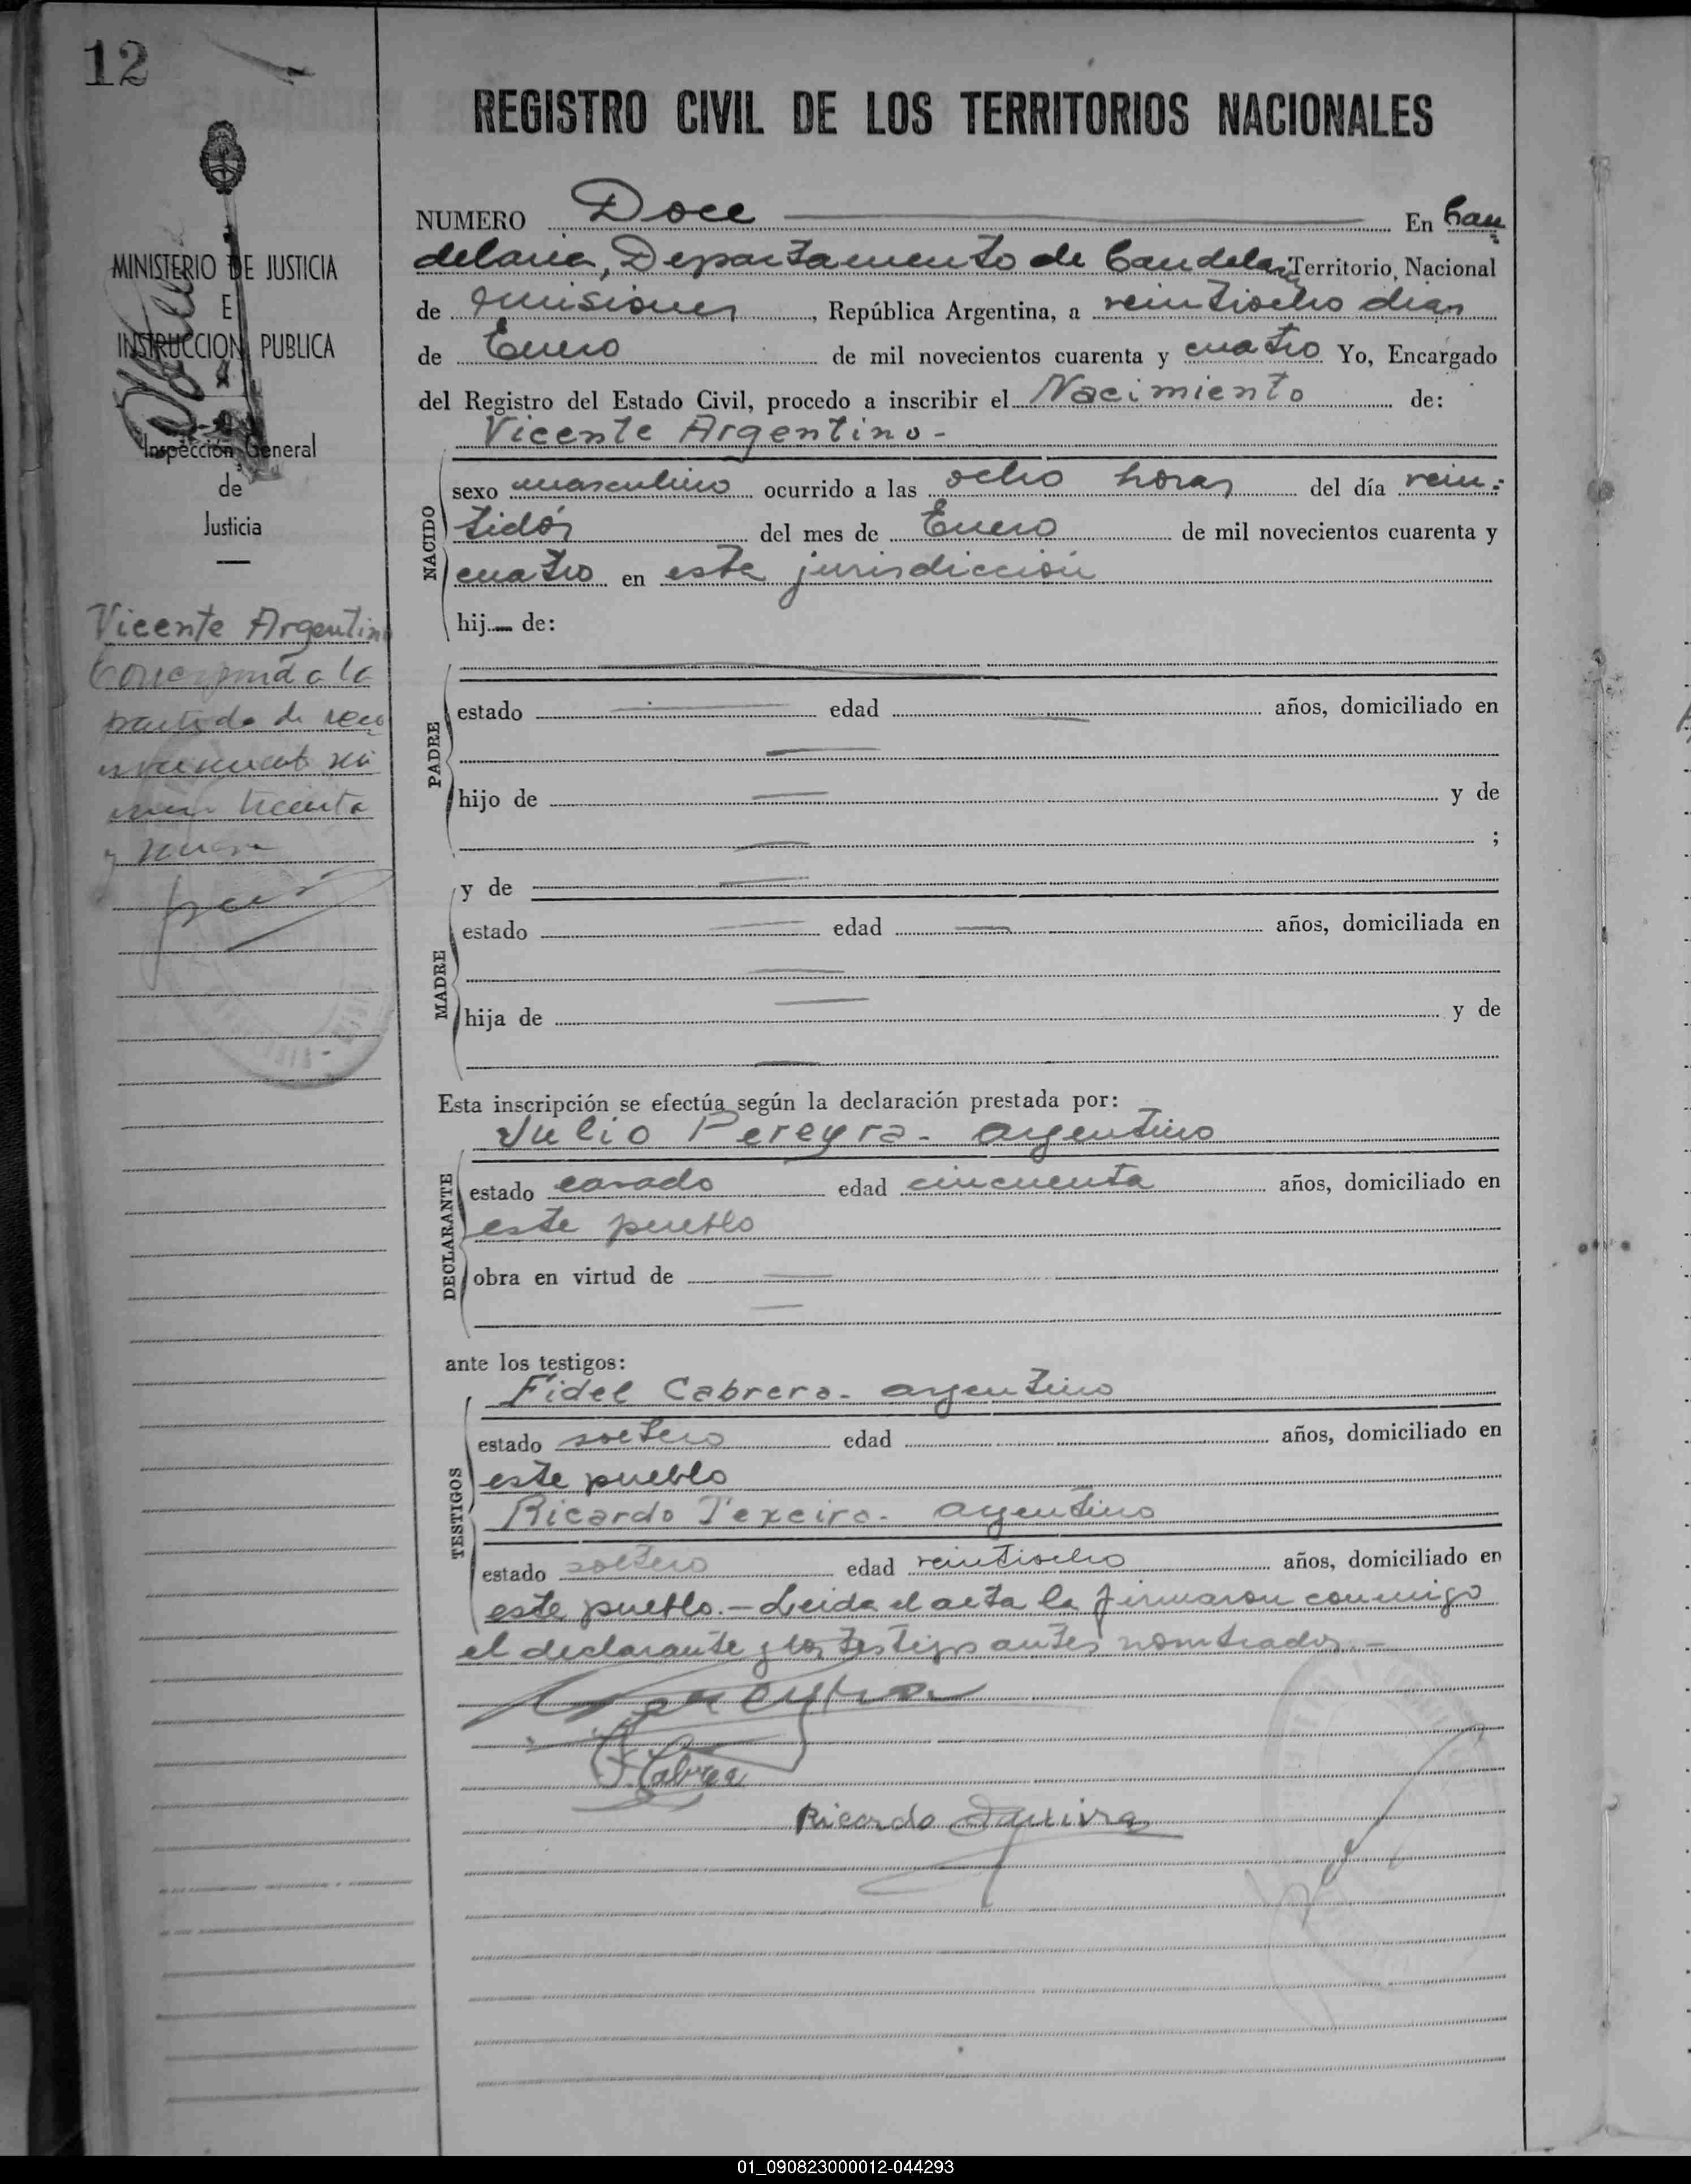 12
REGISTRO CIVIL DE LOS TERRITORIOS NACIONALES
MINISTERIO DE JUSTICIA
E
INSTRUCCION PUBLICA
Inspección General
de
Justicia
Vicente Argentino
a la
partida de reco
trecienta
y nueve
NUMERO Doce En Can
delaria, Departamento de Candelaria Territorio Nacional
de Misiones, República Argentina, a veintiocho dias
de Enero de mil novecientos cuarenta y cuatro Yo, Encargado
del Registro del Estado Civil, procedo a inscribir el Nacimiento de:
Vicente Argentino-
NACIDO
sexo masculino ocurrido a las ocho horas del día vein-
tidós del mes de Enero de mil novecientos cuarenta y
cuatro en esta jurisdicción
hij— de:
PADRE
estado — edad — años, domiciliado en
—
hijo de — y de
— ;
y de —
MADRE
estado — edad — años, domiciliada en
—
hija de — y de
—
Esta inscripción se efectúa según la declaración prestada por:
Julio Pereyra- argentino
DECLARANTE
estado casado edad cincuenta años, domiciliado en
este pueblo
obra en virtud de —
—
ante los testigos:
Fidel Cabrera- argentino
TESTIGOS
estado soltero edad años, domiciliado en
este pueblo
Ricardo Texeira- argentino
estado soltero edad veintiocho años, domiciliado en
este pueblo.- Leida el acta la firmaron conmigo
el declarante y los testigos antes nombrados.-
Pereyra
F. Cabrera
Ricardo Texeira
01_090823000012-044293